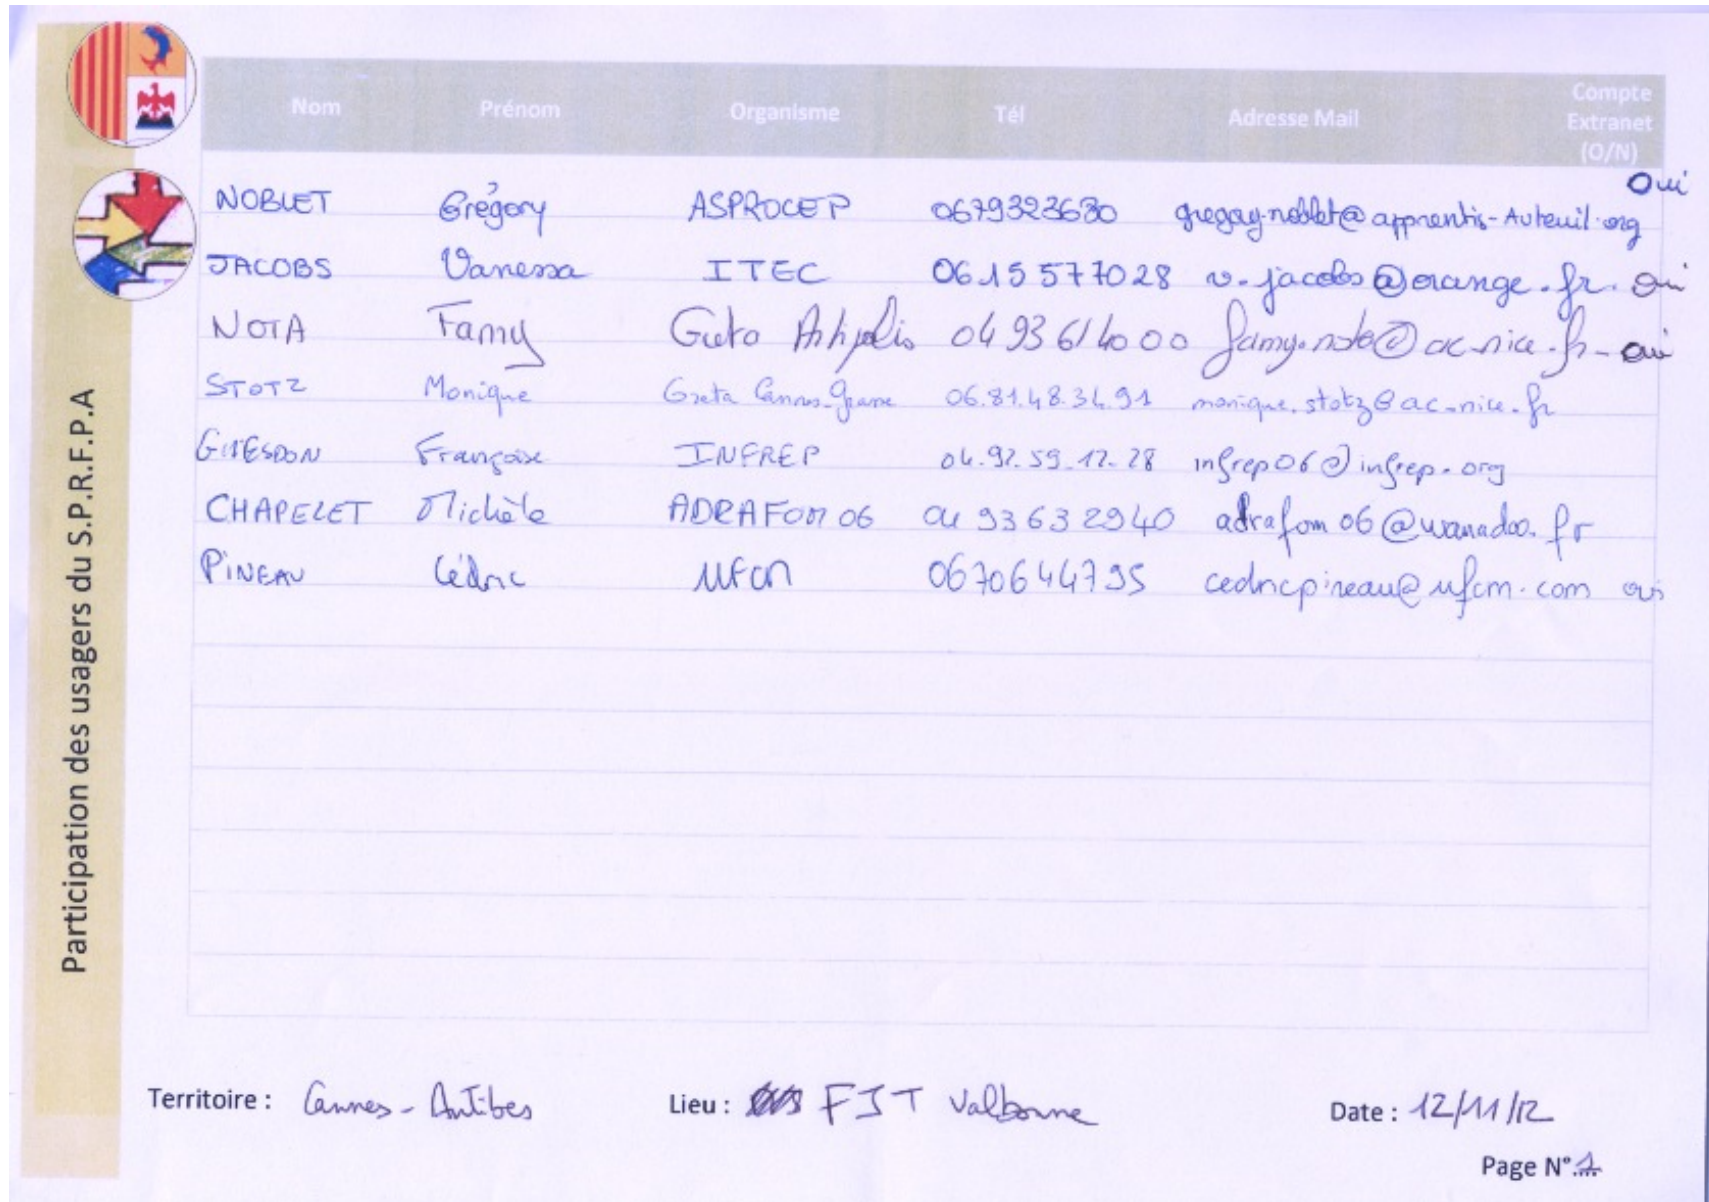 Participation des usagers du S.P.R.F.P.A
Nom Prénom Organisme Tél Adresse Mail Compte Extranet (O/N)
NOBLET Grégory ASPROCEP 0679323630 gregory.noblet@apprentis-Auteuil.org Oui
JACOBS Vanessa ITEC 06.15 577028 v.jacobs@orange.fr. oui
NOTA Famy Greta Antipolis 04 93 61 40 00 famy.nota@ac-nice.fr - oui
STOTZ Monique Greta Cannes-Grasse 06.81.48.34.91 monique.stotz@ac-nice.fr
Françoise INFREP 04.92.59.12.28 infrep06@infrep.org
CHAPELET Michèle ADRAFOM 06 04 93 63 29 40 adrafom06@wanadoo.fr
PINEAU Cédric UFCM 0670644795 cedricpineau@ufcm.com oui
Territoire : Cannes - Antibes Lieu : FJT Valbonne Date : 12/11/12
Page N° 1